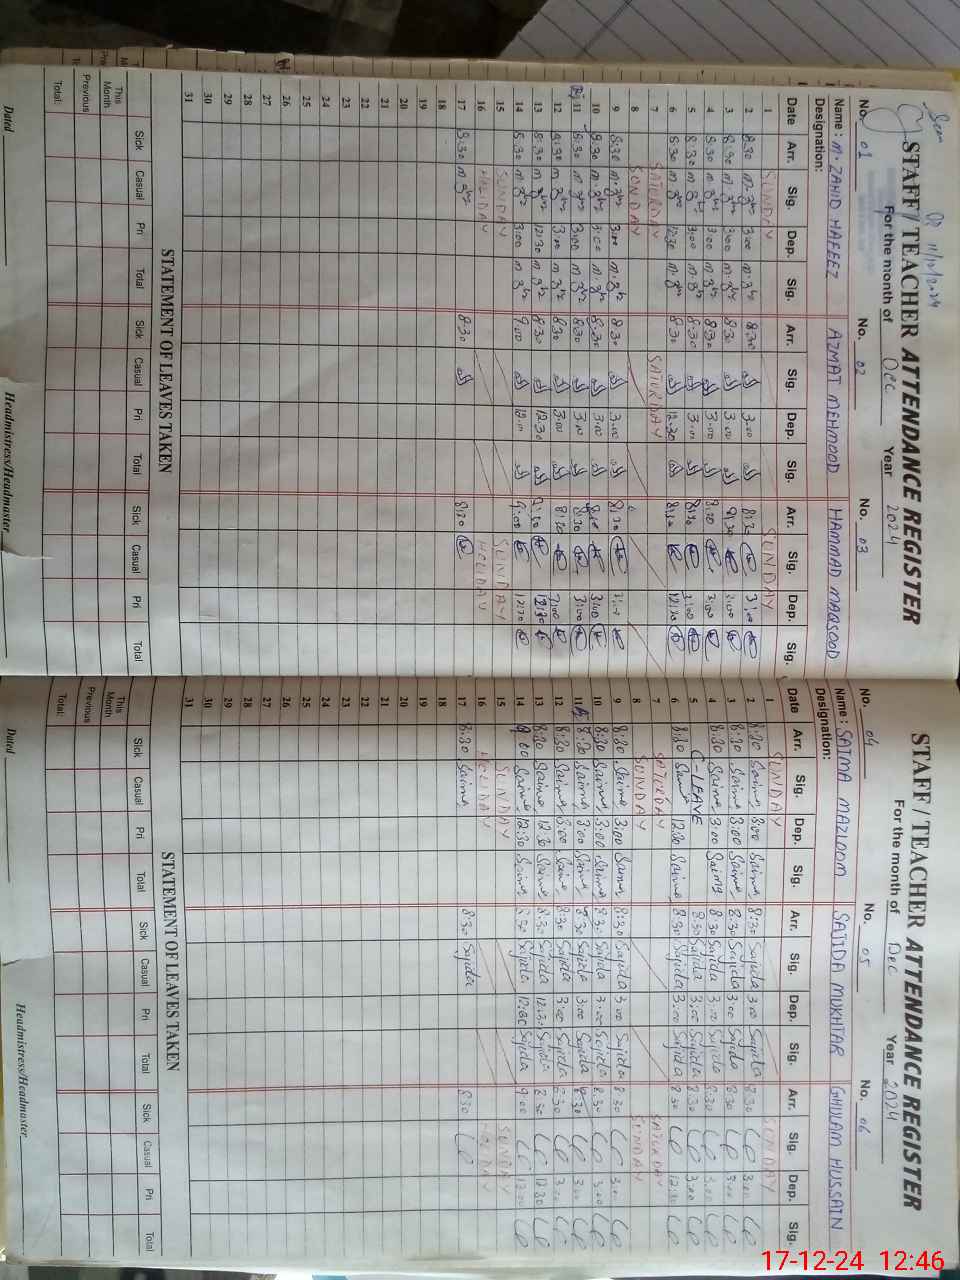 Seen
DR 11/12/2024
STAFF / TEACHER ATTENDANCE REGISTER
For the month of Dec Year 2024
No. 01 No. 02 No. 03
Name : M. ZAHID HAFEEZ AZMAT MEHMOOD HAMMAD MAQSOOD
Designation:
Date Arr. Sig. Dep. Sig. Arr. Sig. Dep. Sig. Arr. Sig. Dep. Sig.
1 SUNDAY SUNDAY
2 8:30 3:00 8:30 3:00 8:30 3:00
3 8:30 3:00 8:30 3:00 8:30 3:00
4 8:30 3:00 8:30 3:00 8:30 3:00
5 8:30 3:00 8:30 3:00 8:30 3:00
6 8:30 12:30 8:30 12:30 8:30 12:30
7 SATURDAY SATURDAY
8 SUNDAY
9 8:30 3:00 8:30 3:00 8:30 3:00
10 8:30 3:00 8:30 3:00 8:30 3:00
11 8:30 3:00 8:30 3:00 8:30 3:00
12 8:30 3:00 8:30 3:00 8:30 3:00
13 8:30 12:30 8:30 12:30 12:30
14 8:30 3:00 9:00 12:00 9:00 12:30
15 SUNDAY SUNDAY
16 HOLIDAY HOLIDAY
17 8:30 8:30 8:30
18
19
20
21
22
23
24
25
26
27
28
29
30
31
STATEMENT OF LEAVES TAKEN
Sick Casual Pri Total Sick Casual Pri Total Sick Casual Pri Total
This Month
Previous
Total:
Dated
Headmistress/Headmaster
STAFF / TEACHER ATTENDANCE REGISTER
For the month of Dec Year 2024
No. 04 No. 05 No. 06
Name : SAIMA MAZLOOM SAJIDA MUKHTAR GHULAM HUSSAIN
Designation:
Date Arr. Sig. Dep. Sig. Arr. Sig. Dep. Sig. Arr. Sig. Dep. Sig.
1 SUNDAY SUNDAY
2 8:30 Saima 3:00 Saima 8:30 Sajida 3:00 Sajida 8:30 3:00
3 8:30 Saima 3:00 Saima 8:30 Sajida 3:00 Sajida 8:30 3:00
4 8:30 Saima 3:00 Saima 8:30 Sajida 3:00 Sajida 8:30 3:00
5 C-LEAVE 8:30 Sajida 3:00 Sajida 8:30 3:00
6 8:30 Saima 12:30 Saima 8:30 Sajida 3:00 Sajida 8:30 12:30
7 SATURDAY SATURDAY
8 SUNDAY SUNDAY
9 8:30 Saima 3:00 Saima 8:30 Sajida 3:00 Sajida 8:30 3:00
10 8:30 Saima 3:00 Saima 8:30 Sajida 3:00 Sajida 8:30 3:00
11 8:30 Saima 3:00 Saima 8:30 Sajida 3:00 Sajida 8:30 3:00
12 8:30 Saima 3:00 Saima 8:30 Sajida 3:00 Sajida 8:30 3:00
13 8:30 Saima 12:30 Saima 8:30 Sajida 12:30 Sajida 8:30 12:30
14 9:00 Saima 12:30 Saima 8:30 Sajida 12:30 Sajida 9:00 12:00
15 SUNDAY SUNDAY
16 HOLIDAY HOLIDAY
17 8:30 Saima 8:30 Sajida 8:30
18
19
20
21
22
23
24
25
26
27
28
29
30
31
STATEMENT OF LEAVES TAKEN
Sick Casual Pri Total Sick Casual Pri Total Sick Casual Pri Total
This Month
Previous
Total:
Dated
Headmistress/Headmaster
17-12-24 12:46